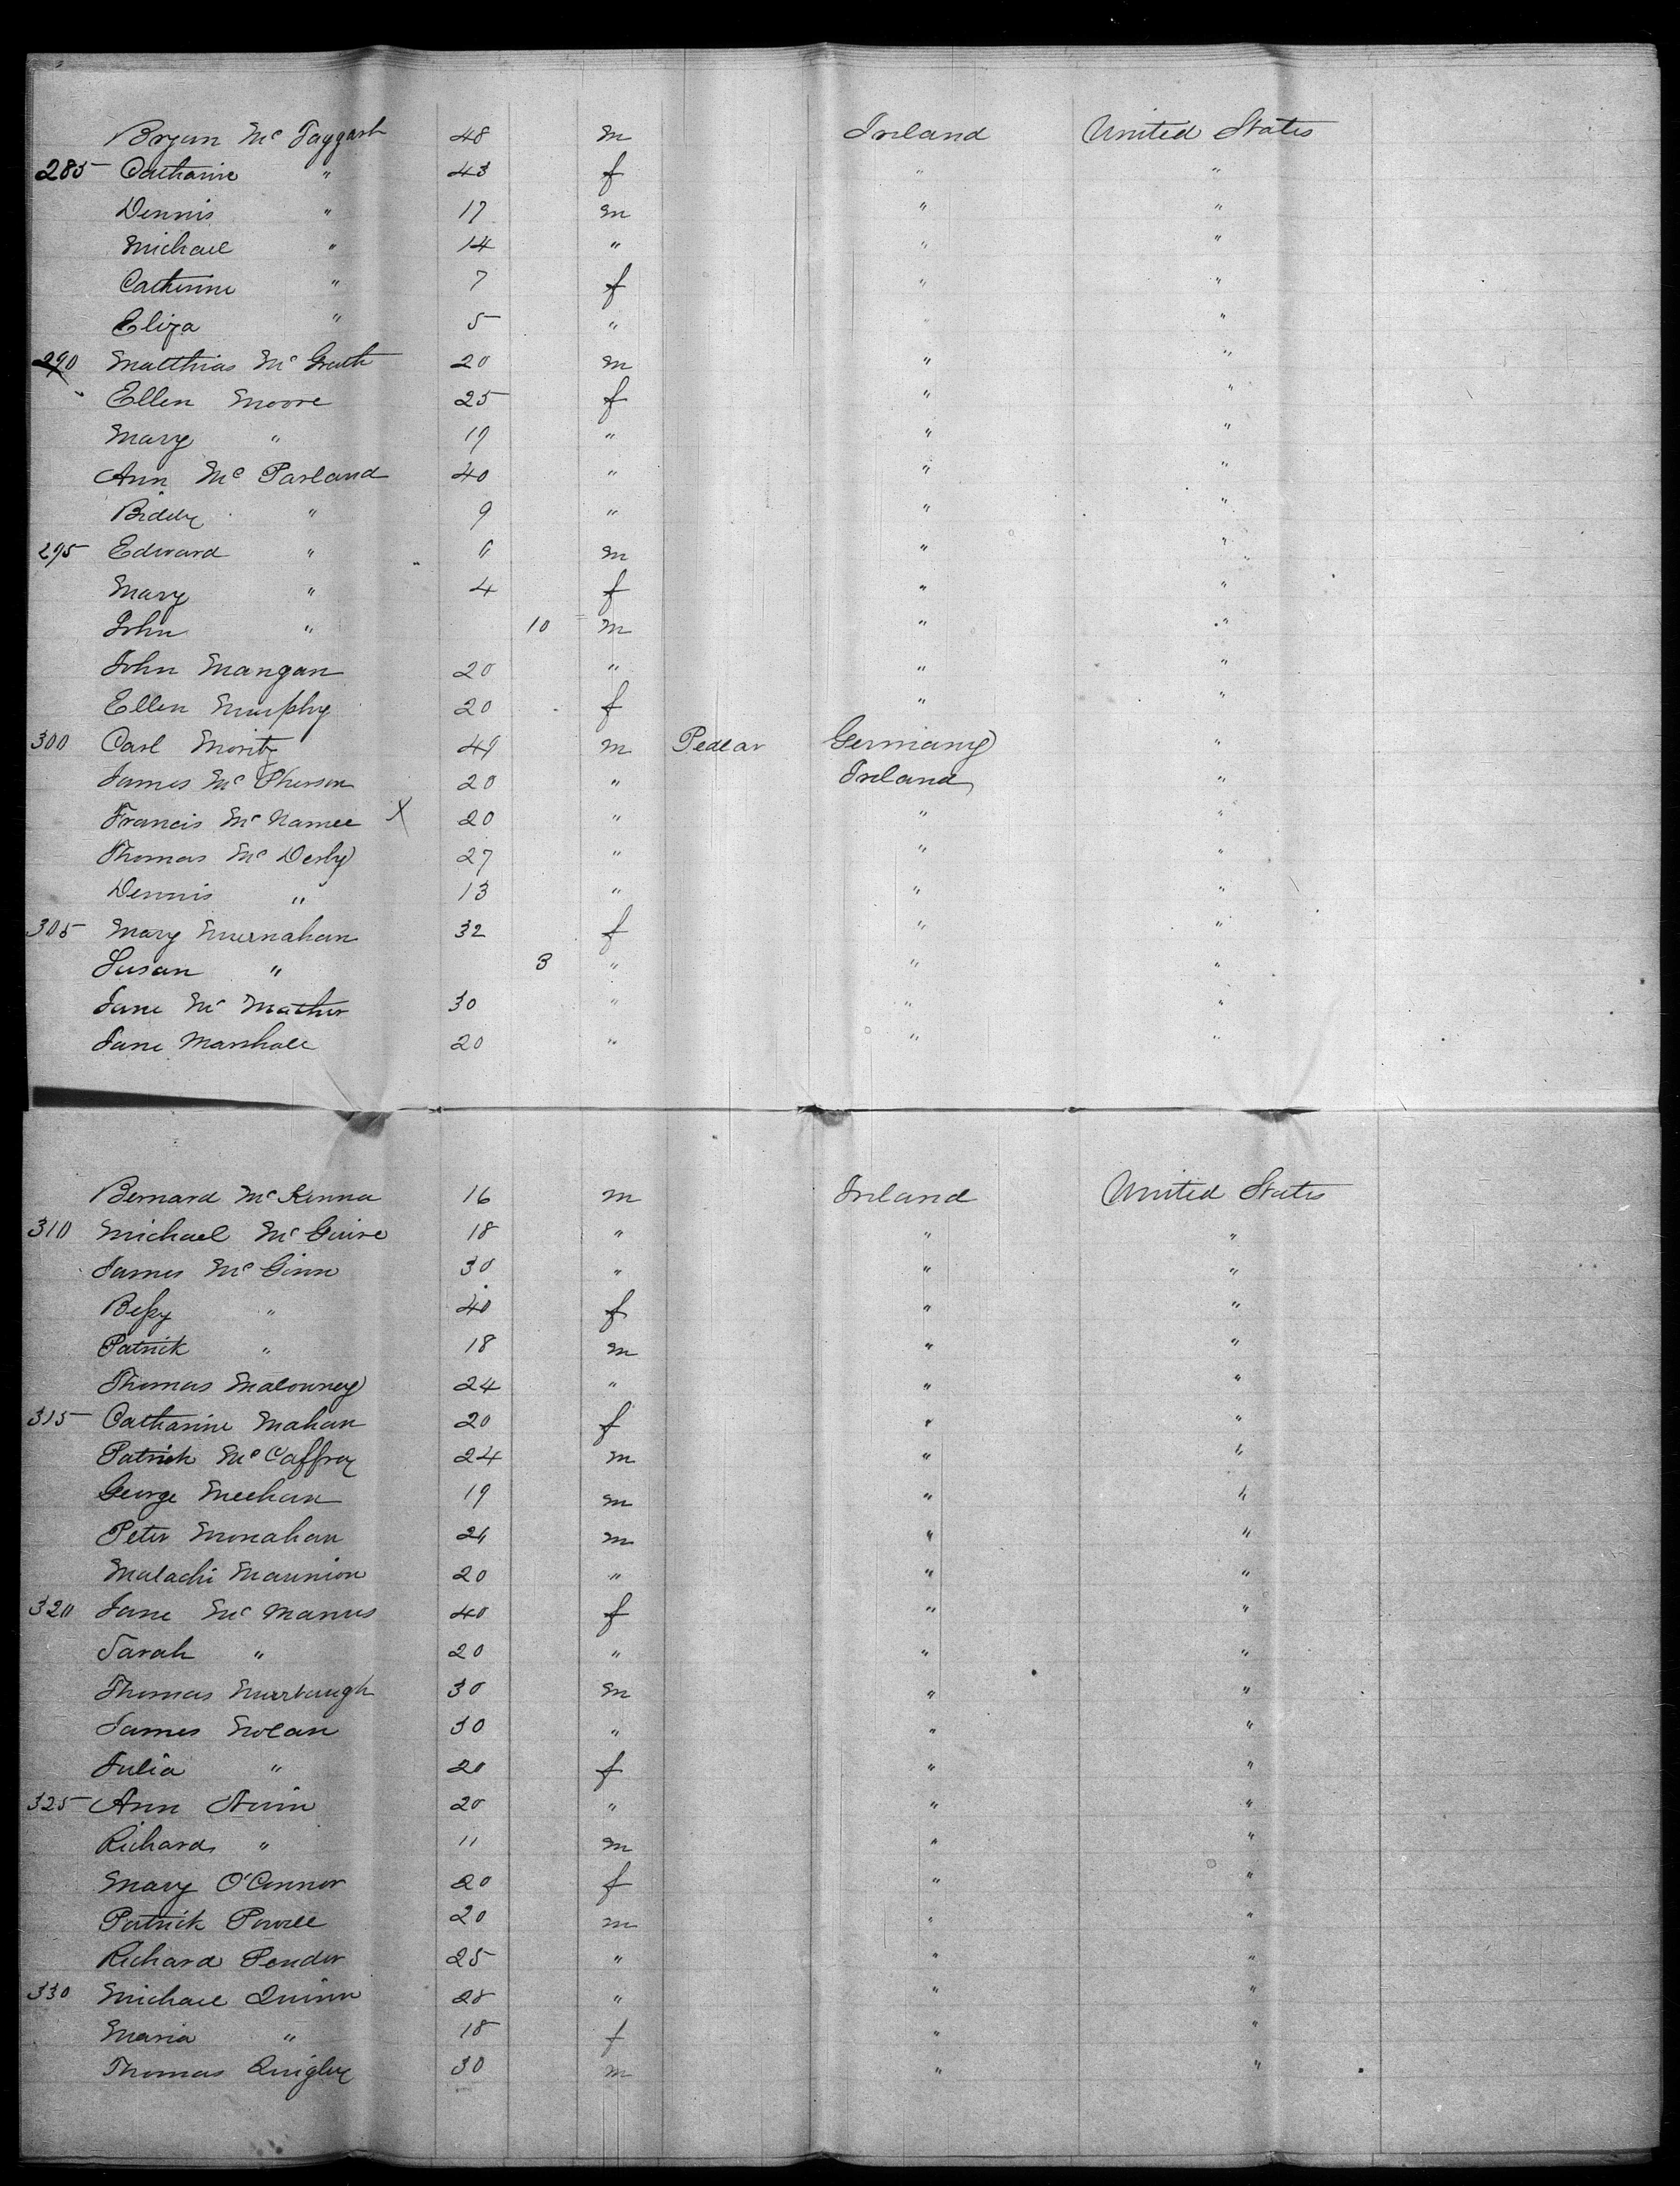 Bryan Mc Taggart 48 m Ireland United States
285 Catharine " 43 f " "
Dennis " 17 m " "
Michael " 14 " " "
Catherine " 7 f " "
Eliza " 5 " "
290 Matthias Mc Grath 20 m " "
Ellen Moore 25 f " "
Mary " 19 " " "
Ann Mc Parland 40 " " "
Biddy " 9 " " "
295 Edward " 6 m " "
Mary " 4 f " "
John " 10 m " "
John Mangan 20 " " "
Ellen Murphy 20 f " "
300 Carl Moritz 49 m Pedlar Germany "
James Mc Pherson 20 " Ireland "
Francis Mc Namee X 20 " " "
Thomas Mc Derby 27 " " "
Dennis " 13 " " "
305 Mary Murnahan 32 f " "
Susan " 3 " " "
Jane Mc Mather 30 " " "
Jane Marshall 20 " " "
Bernard Mc Kenna 16 m Ireland United States
310 Michael Mc Guire 18 " " "
James Mc Ginn 30 " " "
Bessy " 40 f " "
Patrick " 18 m " "
Thomas Malowney 24 " " "
315 Catharine Mahan 20 f " "
Patrick Mc Caffrey 24 m " "
George Meehan 19 m " "
Peter Monahan 24 m " "
Malachi Mannion 20 " " "
320 Jane Mc Manus 40 f " "
Sarah " 20 " " "
Thomas Murtaugh 30 m " "
James Nolan 30 " " "
Julia " 20 f " "
325 Ann Nivin 20 " " "
Richard " 11 m " "
Mary O'Connor 20 f " "
Patrick Powell 20 m " "
Richard Pender 25 " " "
330 Michael Quinn 28 " " "
Maria " 18 f " "
Thomas Quigley 30 m " "